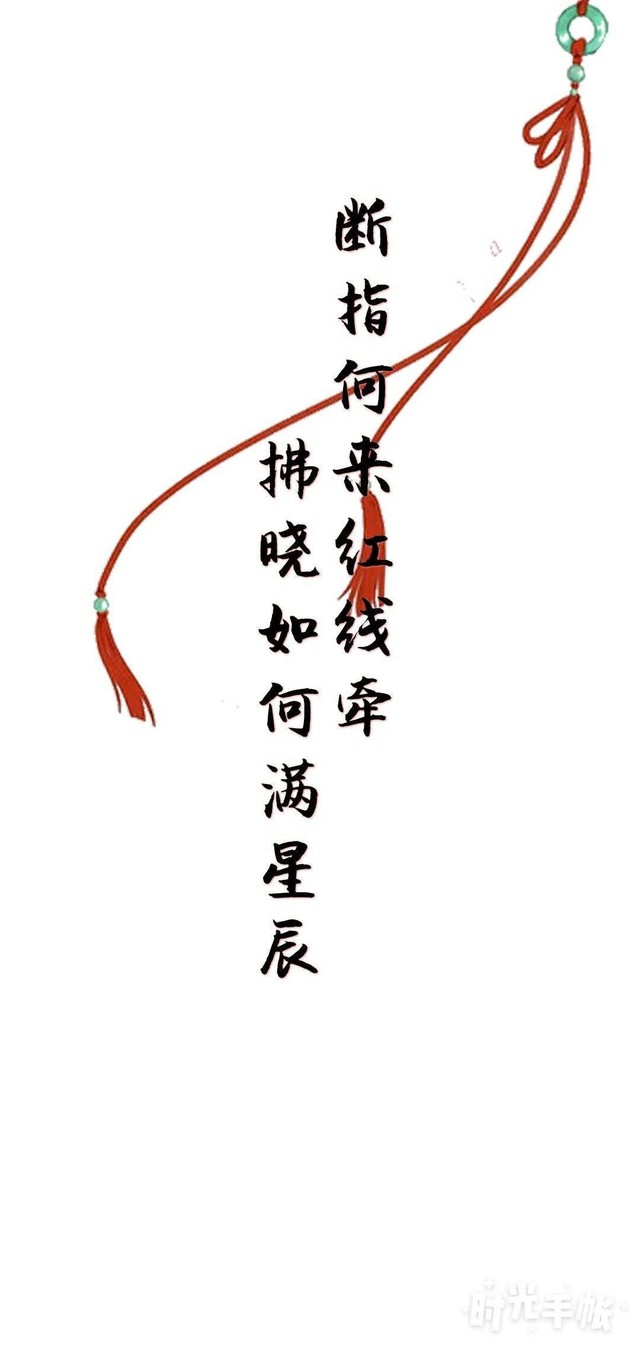 断指何来红线牵
拂晓如何满星辰
时光手帐